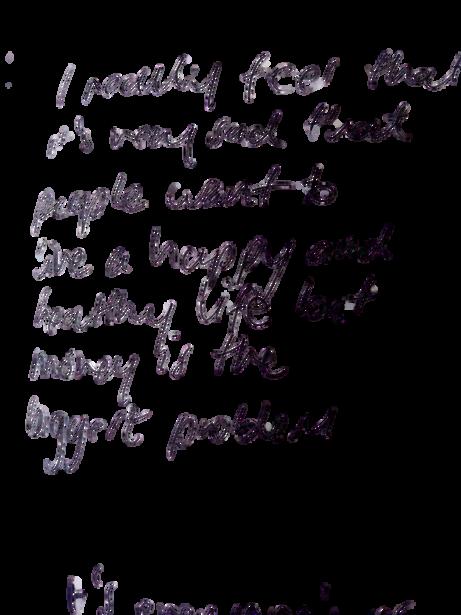 I really feel that
it's very sad that
people want to
live a happy and
healthy life but
money is the
biggest problem
It's